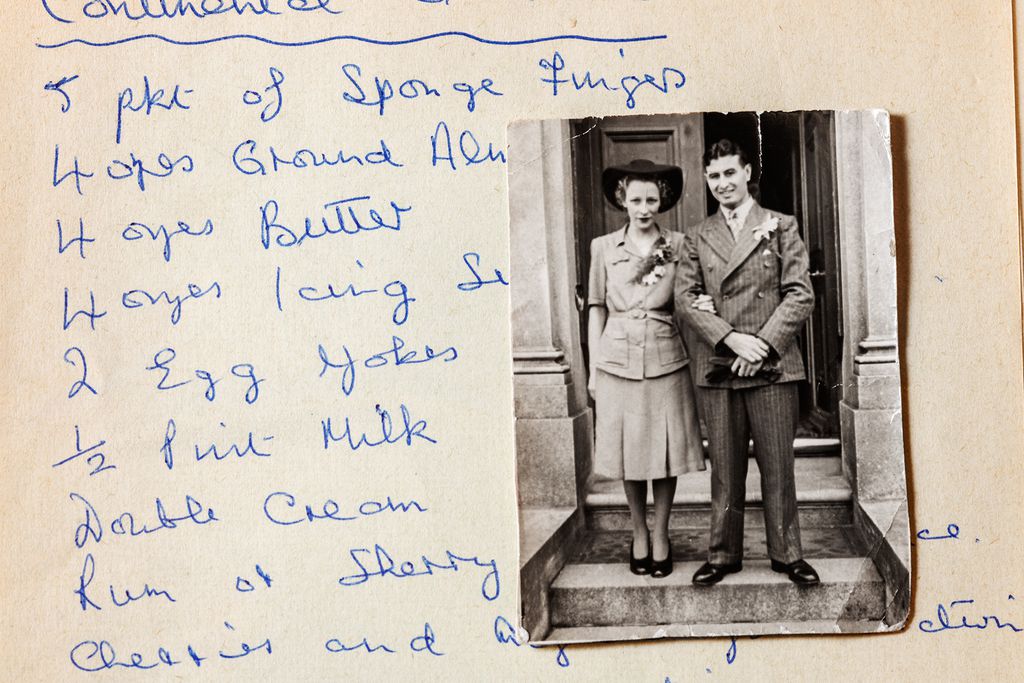 Continental
5 pkt of Sponge Fingers
4 ozes Ground Alm
4 ozes Butter
4 ozes Icing Su
2 Egg Yokes
1/2 Pint Milk
Double Cream
Rum or Sherry ce.
Cherries and